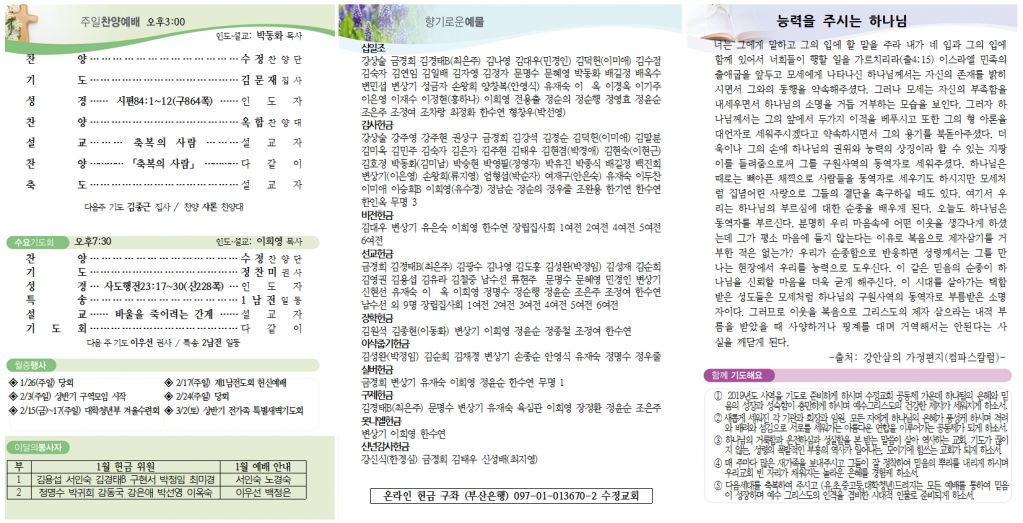 주일찬양예배 오후3:00
인도·설교: 박동화 목사
찬 양 수정 찬양단
기 도 김문재 집사
성 경 시편84:1~12(구864쪽) 인 도 자
찬 양 옥합 찬양대
설 교 축복의 사람 설 교 자
찬 양 「축복의 사람」 다 같 이
축 도 설 교 자
다음주 기도 김종근 집사 / 찬양 샤론 찬양대
수요기도회 오후7:30
인도·설교: 이희영 목사
찬 양 수정 찬양단
기 도 정찬미 권사
성 경 사도행전23:17~30(신228쪽) 인 도 자
특 송 1남전 일동
설 교 바울을 죽이려는 간계 설 교 자
기 도 회 다 같 이
다음 주 기도 이우선 권사 / 특송 2남전 일동
월중행사
◈ 1/26(주일) 당회
◈ 2/3(주일) 상반기 구역모임 시작
◈ 2/15(금)~17(주일) 대학청년부 겨울수련회
◈ 2/17(주일) 제1남전도회 헌신예배
◈ 2/24(주일) 당회
◈ 3/2(토) 상반기 전가족 특별새벽기도회
이달의봉사자
부 1월 헌금 위원 1월 예배 안내
1 김용섭 서인숙 김경태B 구현서 박정임 최미경 서인숙 노경숙
2 정명수 박귀희 강동국 강은애 박선영 이옥숙 이우선 백정은
향기로운예물
십일조
강상술 금경희 김경태B(최은주) 김나영 김대우(민경인) 김덕헌(이미애) 김수점
김숙자 김연임 김일배 김자영 김정자 문명수 문혜영 박동화 배길정 배옥수
변민섭 변상기 성금자 손왕희 양창복(안영식) 유재숙 이 옥 이경옥 이기주
이은영 이재수 이정현(홍하나) 이희영 전용출 정순의 정순행 정영효 정윤순
조은주 조정여 조차랑 최정화 한수연 형창우(박선영)
감사헌금
강상술 강주영 강주현 권상구 금경희 김강석 김경순 김덕헌(이미애) 김말분
김미옥 김민주 김숙자 김은자 김주현 김태우 김현겸(박경애) 김현숙(이현근)
김호정 박동화(김미남) 박승현 박영필(정영자) 박유진 박종식 배길정 백진희
변상기(이은영) 손왕희(류지영) 엄형섭(박순자) 여재구(안은숙) 유재숙 이두찬
이미애 이승희B 이희영(유수정) 정남순 정순의 정우줄 조완용 한기연 한수연
한인옥 무명 3
비전헌금
김대우 변상기 유은숙 이희영 한수연 장립집사회 1여전 2여전 4여전 5여전
6여전
선교헌금
금경희 김경태B(최은주) 김광수 김나영 김도홍 김성완(박정임) 김성재 김순희
김영권 김용섭 김유라 김철중 남수선 류현주 문명수 문혜영 민경인 변상기
신현선 유재숙 이 옥 이희영 정명수 정순행 정윤순 조은주 조정여 한수연
남수선 외 9명 장립집사회 1여전 2여전 3여전 4여전 5여전 6여전
장학헌금
김원석 김종현(이동화) 변상기 이희영 정윤순 정종철 조정여 한수연
이삭줍기헌금
김성완(박정임) 김순희 김재정 변상기 손종순 안영식 유재숙 정명수 정우줄
실버헌금
금경희 변상기 유재숙 이희영 정윤순 한수연 무명 1
구제헌금
김경태B(최은주) 문명수 변상기 유재숙 육심관 이희영 장정환 정윤순 조은주
못나범헌금
변상기 이희영 한수연
신년감사헌금
강신식(한경심) 금경희 김태우 신성배(최지영)
온라인 헌금 구좌 (부산은행) 097-01-013670-2 수정교회
능력을 주시는 하나님
너는 그에게 말하고 그의 입에 할 말을 주라 내가 네 입과 그의 입에
함께 있어서 너희들이 행할 일을 가르치리라(출4:15) 이스라엘 민족의
출애굽을 앞두고 모세에게 나타나신 하나님께서는 자신의 존재를 밝히
시면서 그와의 동행을 약속해주셨다. 그러나 모세는 자신의 부족함을
내세우면서 하나님의 소명을 거듭 거부하는 모습을 보인다. 그러자 하
나님께서는 그의 앞에서 두가지 이적을 베푸시고 또한 그의 형 아론을
대언자로 세워주시겠다고 약속하시면서 그의 용기를 북돋아주셨다. 더
욱이나 그의 손에 하나님의 권위와 능력의 상징이라 할 수 있는 지팡
이를 들려줌으로써 그를 구원사역의 동역자로 세워주셨다. 하나님은
때로는 뼈아픈 채찍으로 사람들을 동역자로 세우기도 하시지만 모세처
럼 집념어린 사랑으로 그들의 결단을 촉구하실 때도 있다. 여기서 우
리는 하나님의 부르심에 대한 순종을 배우게 된다. 오늘도 하나님은
동역자를 부르신다. 분명히 우리 마음속에 어떤 이웃을 생각나게 하셨
는데 그가 평소 마음에 들지 않는다는 이유로 복음으로 제자삼기를 거
부한 적은 없는가? 우리가 순종함으로 반응하면 성령께서는 그를 만
나는 현장에서 우리를 능력으로 도우신다. 이 같은 믿음의 순종이 하
나님을 신뢰할 마음을 더욱 굳게 해주신다. 이 시대를 살아가는 택함
받은 성도들은 모세처럼 하나님의 구원사역의 동역자로 부름받은 소명
자이다. 그러므로 이웃을 복음으로 그리스도의 제자 삼으라는 내적 부
름을 받았을 때 사양하거나 핑계를 대며 거역해서는 안된다는 사
실을 깨닫게 된다.
-출처: 강안삼의 가정편지(컴파스칼럼)-
함께 기도해요
① 2019년도 사역을 기도로 준비하게 하시며 수정교회 공동체 가운데 하나님의 은혜와 믿
음의 성장과 성숙함이 충만하게 하시며 예수그리스도의 건강한 제자가 세워지게 하소서.
② 새롭게 세워진 각 기관과 회장과 임원, 모든 자에게 하나님의 은혜가 풍성케 하시며 격려
와 배려와 섬김으로 서로를 세워가는 아름다운 연합을 이루어가는 공동체가 되게 하소서.
③ 하나님의 거룩함과 온전하심과 성실함을 본 받는 말씀이 살아 역사하는 교회, 기도가 끊이
지 않는, 성령의 폭발적인 부흥의 역사가 일어나는, 모이기에 힘쓰는 교회가 되게 하소서.
④ 매 주마다 많은 새가족을 보내주시고 그들이 잘 정착하여 믿음의 뿌리를 내리게 하시며
우리교회 빈 자리가 채워지는 놀라운 은혜를 경험케 하소서.
⑤ 다음세대를 축복하여 주시고 (유,초,중고등,대학청년)드려지는 모든 예배를 통하여 믿음
이 성장하며 예수 그리스도의 인격을 겸비한 시대적 인물로 준비되게 하소서.